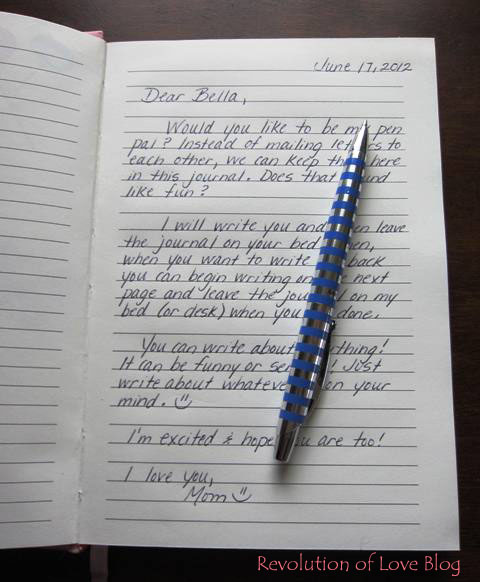 June 17, 2012
Dear Bella,
Would you like to be my pen
pal? Instead of mailing letters to
each other, we can keep them here
in this journal. Does that sound
like fun?
I will write you and then leave
the journal on your bed. Then,
when you want to write me back
you can begin writing on the next
page and leave the journal on my
bed (or desk) when you are done.
You can write about anything!
It can be funny or serious! Just
write about whatever is on your
mind. ☺
I'm excited & hope you are too!
I love you,
Mom ☺
Revolution of Love Blog